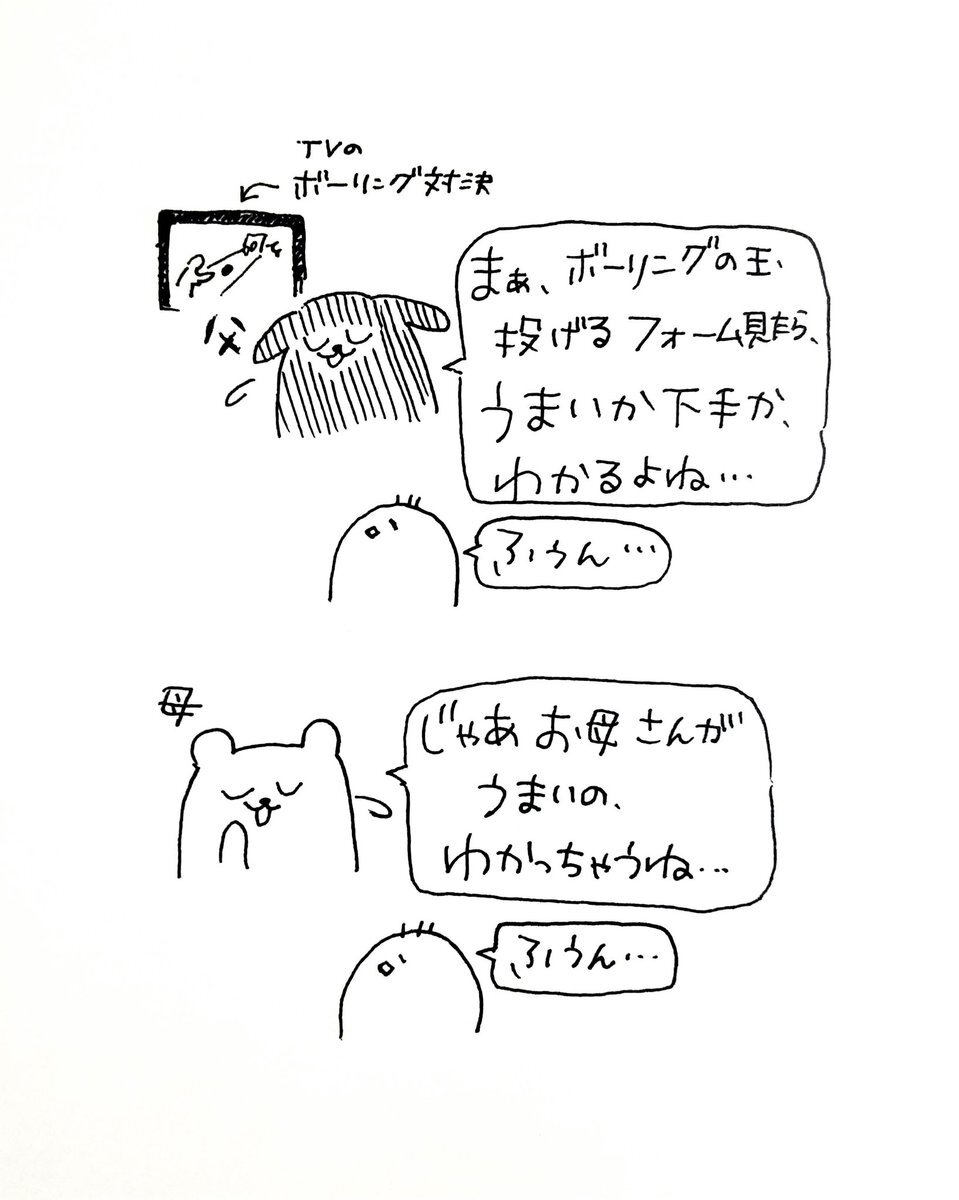 TVの
ボーリング対決
父
まぁ、ボーリングの玉、
投げるフォーム見たら、
うまいか下手か、
わかるよね…
ふぅん…
母
じゃあお母さんが
うまいの、
わかっちゃうね…
ふぅん…